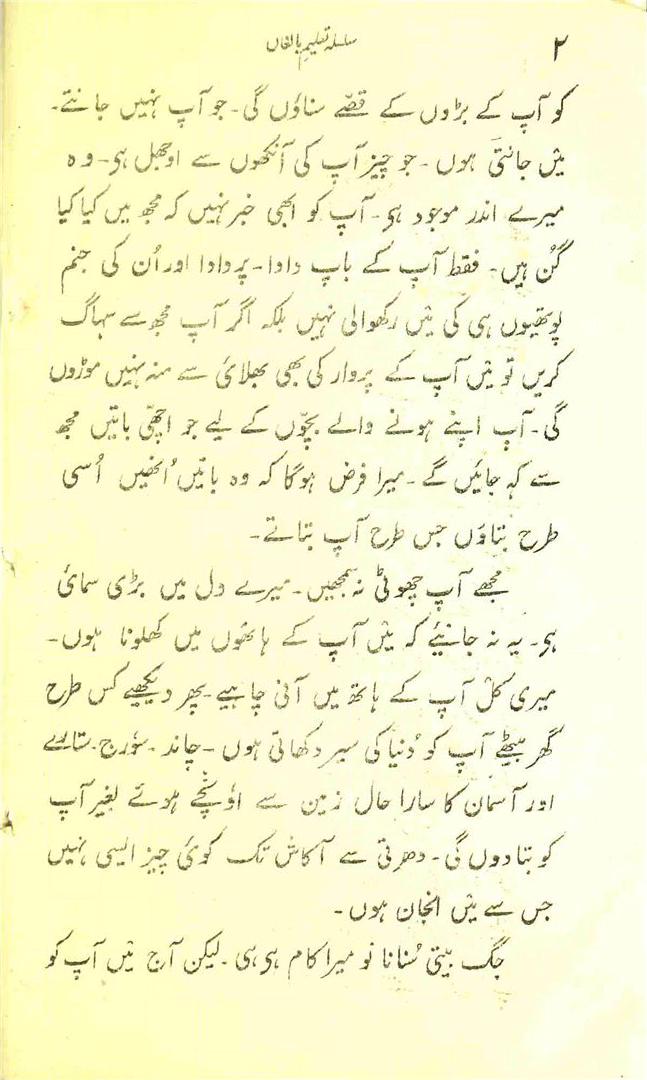 ۲
سلسلہ تعلیم بالغاں
کو آپ کے بڑوں کے قصّے سناؤں گی۔ جو آپ نہیں جانتے۔
میں جانتی ہوں۔ جو چیز آپ کی آنکھوں سے اوجھل ہی۔ وہ
میرے اندر موجود ہی۔ آپ کو ابھی خبر نہیں کہ مجھ میں کیا کیا
گُن ہیں۔ فقط آپ کے باپ دادا۔ پردادا اور اُن کی جنم
پوتھیوں ہی کی میں رکھوالی نہیں بلکہ اگر آپ مجھ سے سہاگ
کریں تو میں آپ کے پروار کی بھی بھلائی سے منہ نہیں موڑوں
گی۔ آپ اپنے ہونے والے بچّوں کے لیے جو اچھّی باتیں مجھ
سے کہہ جائیں گے۔ میرا فرض ہوگا کہ وہ باتیں اُنھیں اُسی
طرح بتاؤں جس طرح آپ بتاتے۔
مجھے آپ چھوٹی نہ سمجھیں۔ میرے دل میں بڑی سمائی
ہی۔ یہ نہ جانیئے کہ میں آپ کے ہاتھوں میں کھلونا ہوں۔
میری کل آپ کے ہاتھ میں آنی چاہیے۔ پھر دیکھیے کس طرح
گھر بیٹھے آپ کو دُنیا کی سیر دکھاتی ہوں۔ چاند۔ سورج۔ ستارے
اور آسمان کا سارا حال زمین سے اونچے ہوئے بغیر آپ
کو بتا دوں گی۔ دھرتی سے آکاش تک کوئی چیز ایسی نہیں
جس سے میں انجان ہوں۔
جگ بیتی سُنانا تو میرا کام ہی ہی۔ لیکن آج میں آپ کو